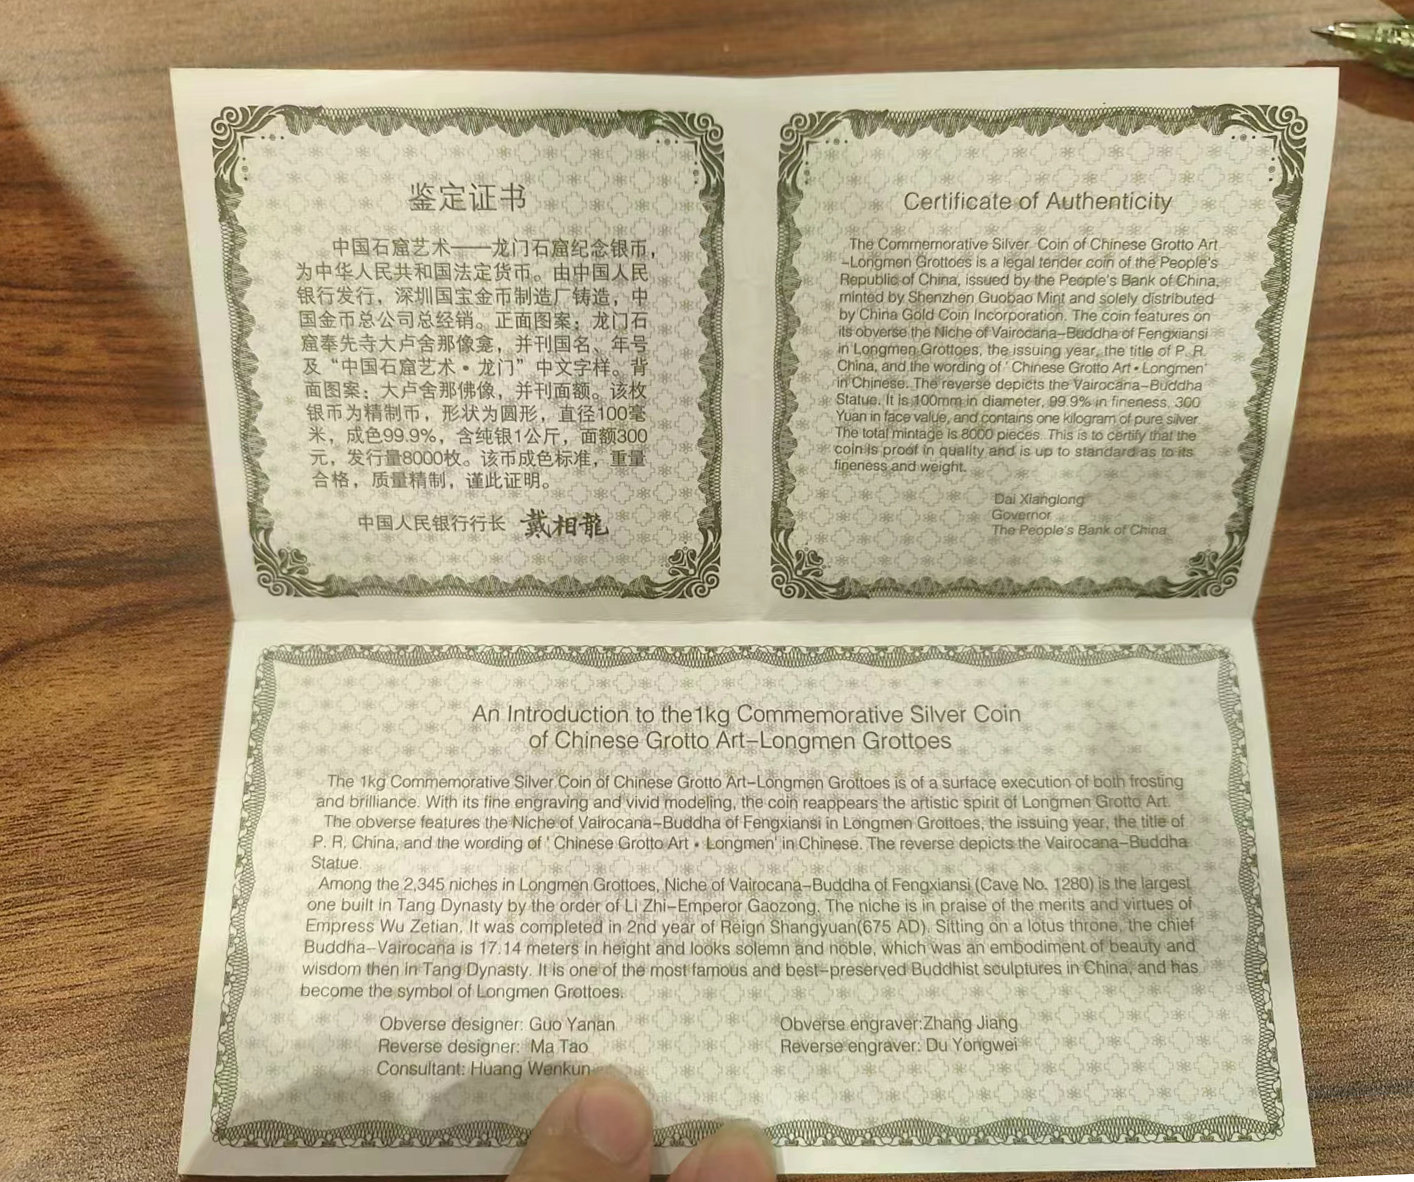 鉴定证书
中国石窟艺术——龙门石窟纪念银币，
为中华人民共和国法定货币。由中国人民
银行发行，深圳国宝金币制造厂铸造，中
国金币总公司总经销。正面图案：龙门石
窟奉先寺大卢舍那像龛，并刊国名、年号
及“中国石窟艺术·龙门”中文字样。背
面图案：大卢舍那佛像，并刊面额。该枚
银币为精制币，形状为圆形，直径100毫
米，成色99.9%，含纯银1公斤，面额300
元，发行量8000枚。该币成色标准，重量
合格，质量精制，谨此证明。
中国人民银行行长 戴相龍
Certificate of Authenticity
The Commemorative Silver Coin of Chinese Grotto Art
-Longmen Grottoes is a legal tender coin of the People's
Republic of China, issued by the People's Bank of China,
minted by Shenzhen Guobao Mint and solely distributed
by China Gold Coin Incorporation. The coin features on
its obverse the Niche of Vairocana-Buddha of Fengxiansi
in Longmen Grottoes, the issuing year, the title of P. R.
China, and the wording of ' Chinese Grotto Art·Longmen'
in Chinese. The reverse depicts the Vairocana-Buddha
Statue. It is 100mm in diameter, 99.9% in fineness, 300
Yuan in face value, and contains one kilogram of pure silver
The total mintage is 8000 pieces. This is to certify that the
coin is proof in quality and is up to standard as to its
fineness and weight.
Dai Xianglong
Governor
The People's Bank of China
An Introduction to the1kg Commemorative Silver Coin
of Chinese Grotto Art-Longmen Grottoes
The 1kg Commemorative Silver Coin of Chinese Grotto Art-Longmen Grottoes is of a surface execution of both frosting
and brilliance. With its fine engraving and vivid modeling, the coin reappears the artistic spirit of Longmen Grotto Art.
The obverse features the Niche of Vairocana-Buddha of Fengxiansi in Longmen Grottoes, the issuing year, the title of
P. R. China, and the wording of ' Chinese Grotto Art · Longmen' in Chinese. The reverse depicts the Vairocana-Buddha
Statue.
Among the 2,345 niches in Longmen Grottoes, Niche of Vairocana-Buddha of Fengxiansi (Cave No. 1280) is the largest
one built in Tang Dynasty by the order of Li Zhi-Emperor Gaozong. The niche is in praise of the merits and virtues of
Empress Wu Zetian. It was completed in 2nd year of Reign Shangyuan(675 AD). Sitting on a lotus throne, the chief
Buddha-Vairocana is 17.14 meters in height and looks solemn and noble, which was an embodiment of beauty and
wisdom then in Tang Dynasty. It is one of the most famous and best-preserved Buddhist sculptures in China, and has
become the symbol of Longmen Grottoes.
Obverse designer: Guo Yanan
Obverse engraver:Zhang Jiang
Reverse designer: Ma Tao
Reverse engraver: Du Yongwei
Consultant: Huang Wenkun